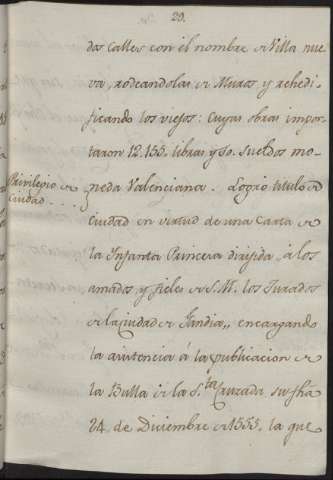 29.
dos calles con el nombre de Villa nue
va, rodeandolas de Muros y rehedi-
ficando los viejos: Cuyas obras impor
taron 12.155. libras y 10. sueldos mo
Privilegio de neda Valenciana. Logró titulo de
Ciudad . . . Ciudad en virtud de una Carta de
la Infanta Princesa dirijida á los
amados, y fieles de S. M. los Jurados
de la Ciudad de Gandia,, encargando
la asistencia á la publicacion de
la Bulla de la S.ta Cruzada su fha
24 de Diciembre de 1555. la que